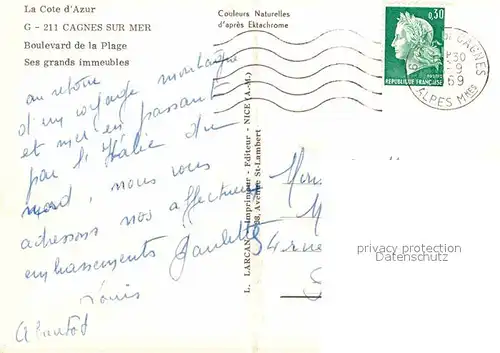 La Cote d'Azur
G - 211 CAGNES SUR MER
Boulevard de la Plage
Ses grands immeubles
Couleurs Naturelles
d'après Ektachrome
0,30
REPUBLIQUE FRANÇAISE
CAGNES
30
-9
69
ALPES Mmes
au retour
d'un voyage montagne
et mer en passant
par l'Italie du
nord, nous vous
adressons nos affectueux
embrassements Paulette
Louis
A bientôt
L. LARCAN - Imprimeur - Editeur - NICE (A.-M.)
38, Avenue St-Lambert
54 rue
privacy protection
Datenschutz